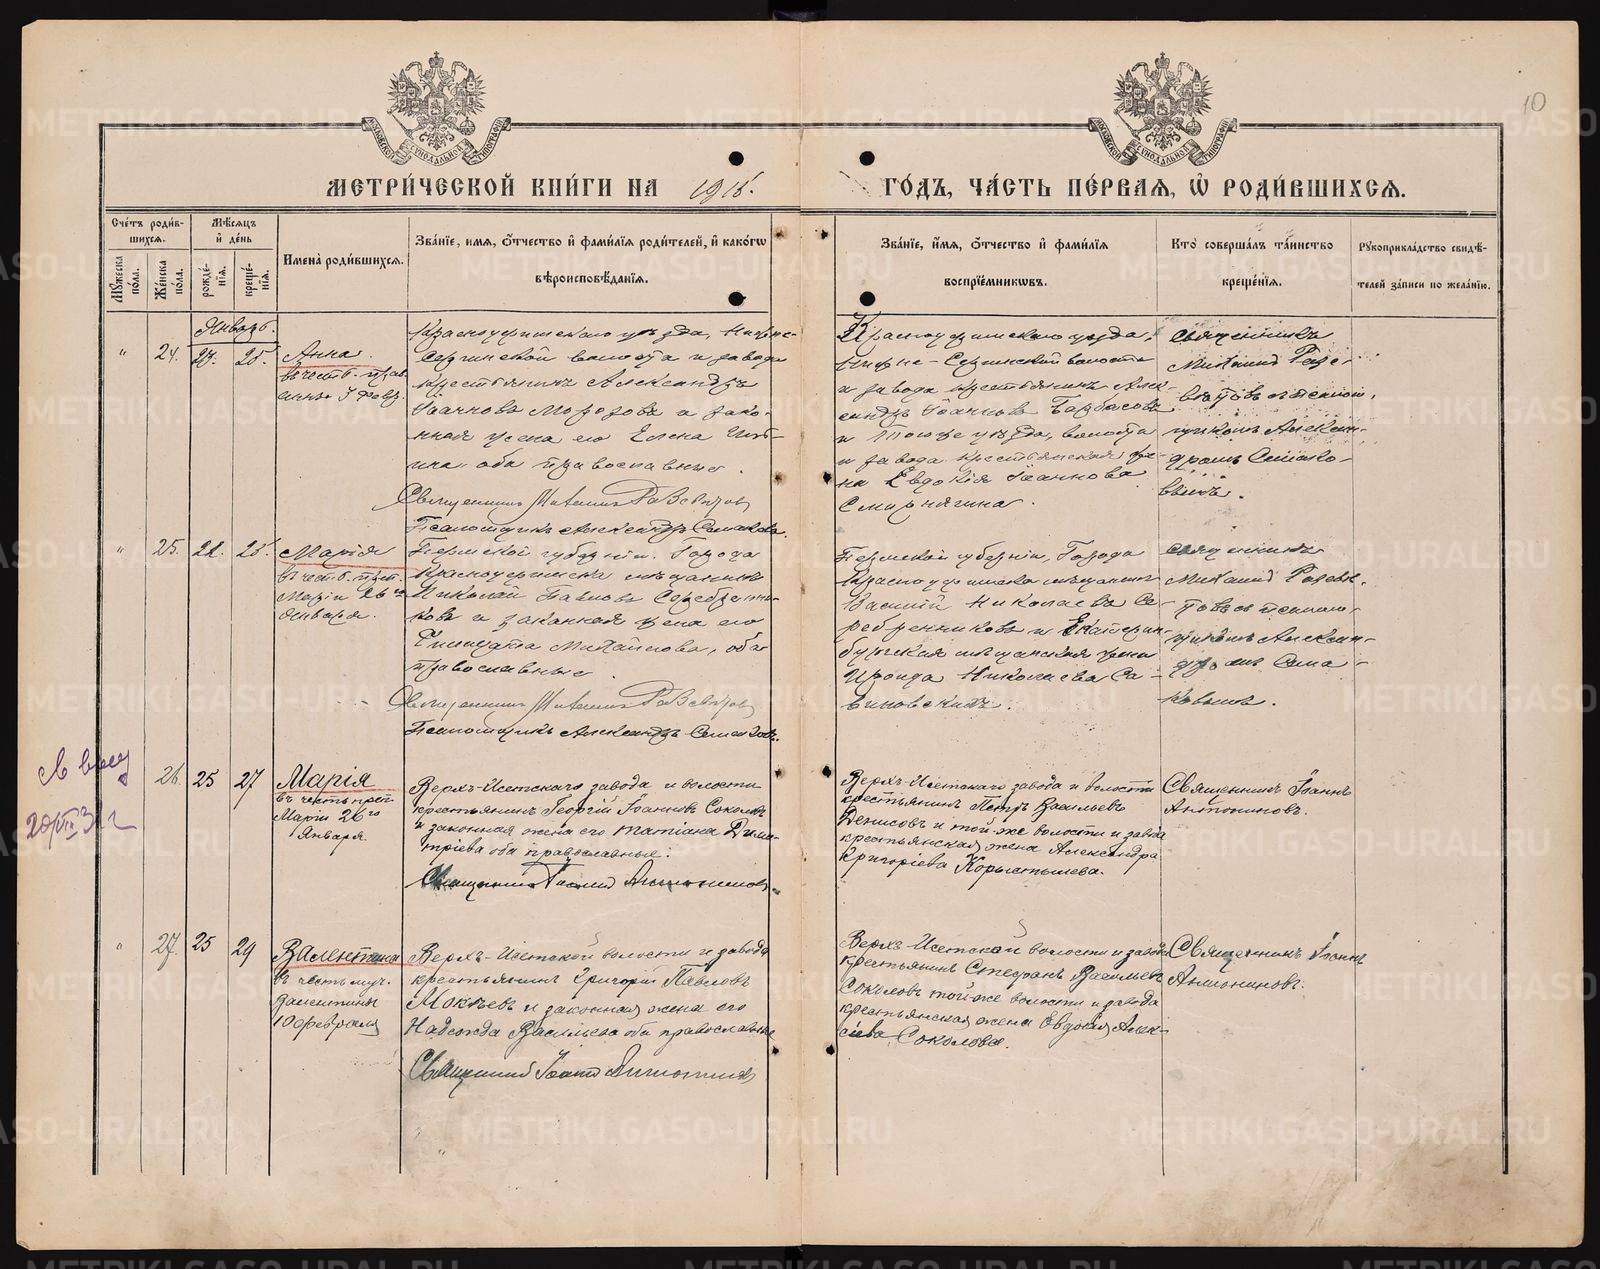 10
МОСКОВСКОЙ СУНОДАЛЬНОЙ ТИПОГРАФІИ
МОСКОВСКОЙ СУНОДАЛЬНОЙ ТИПОГРАФІИ
МЕТРИ́ЧЕСКОЙ КНИ́ГИ НА 1915.
ГО́ДЪ, ЧА́СТЬ ПЕ́РВАЯ, Ѡ҆ РОДИ́ВШИХСЯ.
Сче́тъ роди́в-
шихся.
Мѣ́сяцъ
и҆ де́нь
Мꙋ́жеска по́ла.
Же́нска по́ла.
рожде́-
нїя.
креще́-
нїя.
Имена̀ роди́вшихся.
Зва́нїе, имя, ѻ҆́тчество и҆ фами́лїя роди́телей, и҆ како́гѡ
вѣроисповѣ́данїя.
Зва́нїе, и҆́мя, ѻ҆́тчество и҆ фами́лїя
воспрїе́мникѡвъ.
Кто̀ соверша́лъ та́инство
креще́нїя.
Рꙋкоприкла́дство свидѣ́-
телей за́писи по жела́нїю.
Январь.
" 24. 23. 25.
Анна.
въ честь прав.
Анны 3 февр.
Красноуфимскаго уѣзда, Нижне-
Сергинской волости и завода
крестьянинъ Александръ
Іоанновъ Морозовъ и закон-
ная жена его Елена
оба православные.
Священникъ Михаилъ
Псаломщикъ Александръ
Красноуфимскаго уѣзда,
Нижне-Сергинской волости
и завода крестьянинъ Алек-
сандръ Іоанновъ
и того же уѣзда, волости
и завода крестьянская же-
на Евдокія Іоаннова
Смирнягина.
Священникъ
Михаилъ
съ псалом-
щикомъ Алексан-
дромъ
" 25. 22. 25.
Марія
въ честь преп.
Маріи 26го
Января.
Пермской губерніи. Города
Красноуфимска мѣщанинъ
Николай Павловъ Серебренни-
ковъ и законная жена его
Михайлова, оба
православные.
Священникъ Михаилъ
Псаломщикъ Александръ
Пермской губерніи, Города
Красноуфимска мѣщанинъ
Василій Николаевъ Се-
ребренниковъ и Екатерин-
бургская мѣщанская жена
Ираида Николаева
Священникъ
Михаилъ
съ псалом-
щикомъ Алексан-
дромъ
26 25 27
Марія
въ честь преп.
Маріи 26го
Января
Верхъ-Исетскаго завода и волости
крестьянинъ Георгій Іоанновъ Соколовъ
и законная жена его Татіана Дими-
тріева оба православные.
Священникъ Іоаннъ Антониновъ
Верхъ-Исетскаго завода и волости
крестьянинъ Петръ Васильевъ
Денисовъ и той-же волости и завода
крестьянская жена Александра
Григоріева Корыстылева.
Священникъ Іоаннъ
Антониновъ.
" 27. 25 29
Валентина
въ честь муч.
Валентины
10 февраля
Верхъ-Исетской волости и завода
крестьянинъ Григорій Павловъ
Мокѣевъ и законная жена его
Надежда Васильева оба православные
Священникъ Іоаннъ Антониновъ
Верхъ-Исетской волости и завода
крестьянинъ Стефанъ Васильевъ
Соколовъ той-же волости и завода
крестьянская жена Евдокія Алек-
сіева Соколова.
Священникъ Іоаннъ
Антониновъ.
METRIKI.GASO-URAL.RU